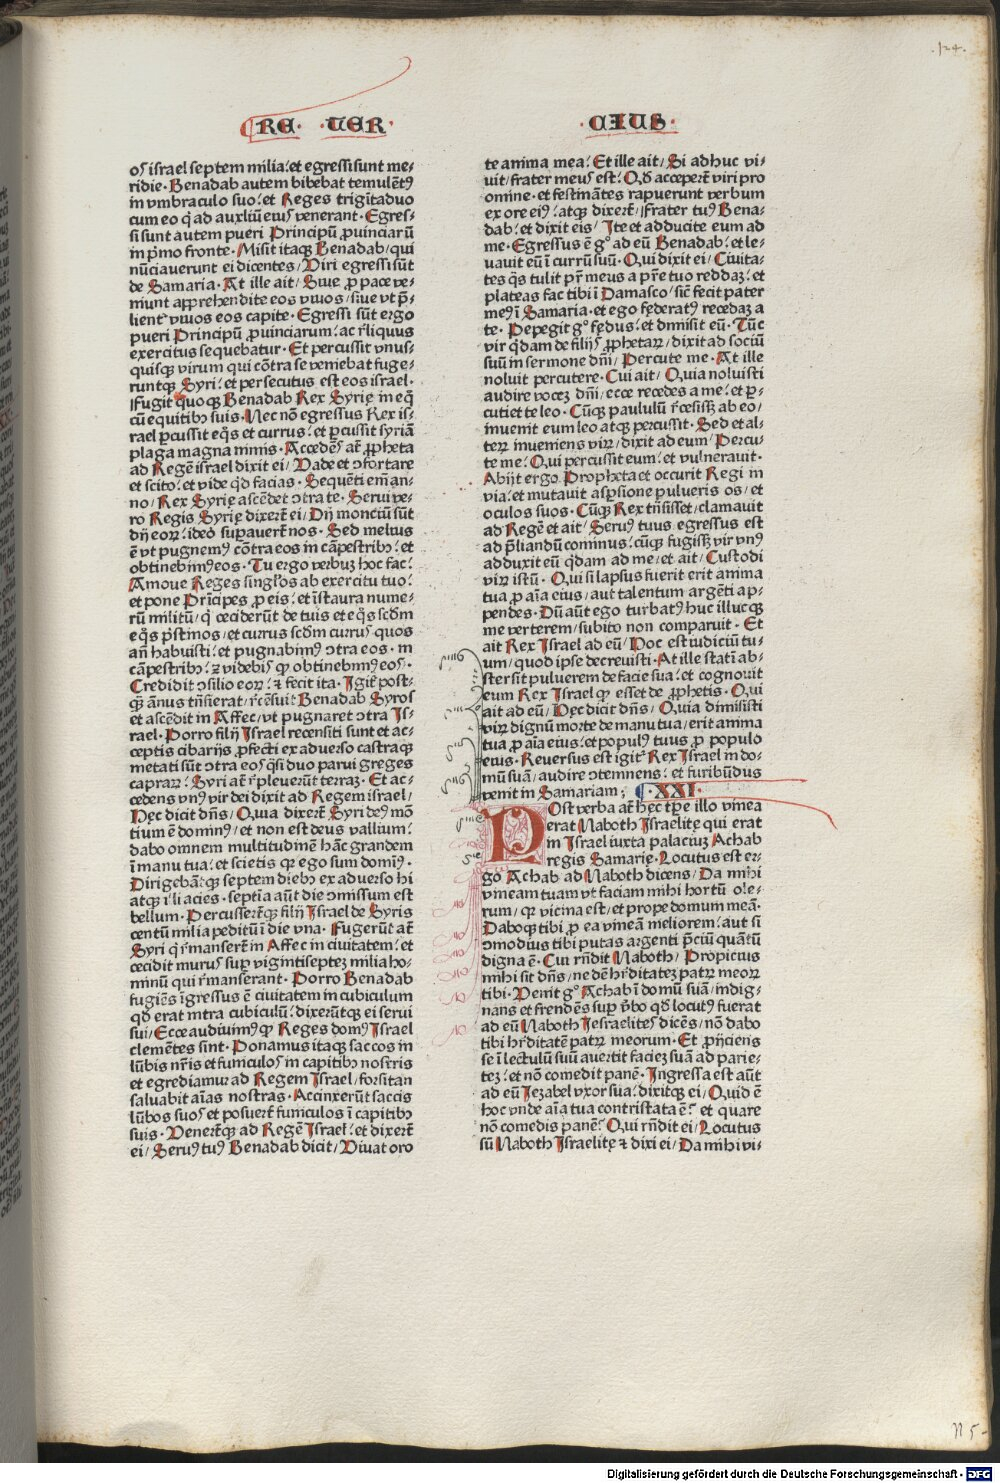 .124.
RE· ·TER· ·CIUS·
os israel septem milia: et egressi sunt me-
ridie· Benadab autem bibebat temulētꝰ
in vmbraculo suo: et Reges triginta duo
cum eo q̇ ad auxiliū eius venerant· Egres-
si sunt autem pueri Principū ꝓuinciarū
in p̄mo fronte· Misit itaqꝫ Benadab/ qui
nūciaverunt ei dicentes/ Viri egressi sūt
de Samaria· At ille ait/ Sive ꝓ pace ve-
niunt apprehendite eos vivos/ sive vt p̄-
lientᵉ vivos eos capite· Egressi sūt ergo
pueri Principū ꝓvinciarum: ac r̄liquus
exercitus sequebatur· Et percussit vnus-
quisqꝫ virum qui cōtra se veniebat: fuge-
runtqꝫ Syri: et persecutus est eos israel·
Fugit quoqꝫ Benadab Rex Syrię in eq̇
cū equitibꝫ suis· Nec nō egressus Rex is-
rael ꝑcussit eq̇s et currus: et ꝑcussit syriā
plaga magna nimis· Accedēs at̄ ꝓpheta
ad Regē israel dixit ei/ Vade et ɔfortare
et scito: et vide qd̄ facias· Sequēti em̄ an-
no/ Rex Syrię ascēdet ɔtra te· Servi ve-
ro Regis Syrię dixer̄t ei/ Dij monciū sūt
dij eoꝝ: ideo supauer̄t nos· Sed melius
ē vt pugnemꝰ cōtra eos in cāpestribꝫ: et
obtinebimꝰ eos· Tu ergo verbuꝫ hoc fac:
Amove Reges singl̄os ab exercitu tuo:
et pone Prīcipes ꝓ eis: et īstaura nume-
rū militū/ q̇ ceciderūt de tuis et eq̇s scd̄m
eq̇s p̄stinos/ et currus scd̄m currus quos
an̄ habuisti: et pugnabimꝰ ɔtra eos· in
cāpestribꝫ: ⁊ videbis qꝫ obtinebimꝰ eos·
Credidit ɔsilio eoꝝ: ⁊ fecit ita· Igiṫ post-
qꝫ ānus trn̄sierat/ r̄cēsuit Benadab Syros
et ascēdit in Affec/ vt pugnaret ɔtra Is-
rael· Porro filij Israel recensiti sunt et ac-
ceptis cibarijs ꝓfecti ex adverso castraqꝫ
metati sūt ɔtra eos q̇si duo parui greges
capraꝝ: Syri at̄ r̄pleverūt terraꝫ· Et ac-
cedens vnꝰ vir dei dixit ad Regem israel/
Hęc dicit dn̄s/ Quia dixer̄t Syri deꝰ mō
tium ē dominꝰ/ et non est deus vallium:
dabo omnem multitudinē hāc grandem
ī manu tua: et scietis qꝫ ego sum dominꝰ·
Dirigebātqꝫ septem diebꝫ ex adverso hi
atqꝫ illi acies· septīa aūt die ɔmissum est
bellum· Percusser̄tqꝫ filij Israel de Syris
centū milia peditū ī die vna· Fugerūt at̄
Syri q̇ r̄manser̄t in Affec in civitatem: et
cecidit murus suꝑ vigintisepteꝫ milia ho-
minū qui r̄manserant· Porro Benadab
fugiēs īgressus ē civitatem in cubiculum
qd̄ erat intra cubiculū: dixerūtqꝫ ei servi
sui/ Ecce audivimꝰ qꝫ Reges domꝰ Israel
clementes sint· Ponamus itaqꝫ saccos in
lūbis nr̄is et funiculos in capitibꝫ nostris
et egrediamur ad Regem Israel/ forsitan
salvabit aīas nostras· Accinxerūt saccis
lūbos suos et posuer̄t funiculos ī capitibꝫ
suis· Vener̄tqꝫ ad Regē Israel: et dixer̄t
ei/ Servꝰ tuꝰ Benadab dicit/ Vivat oro
te anima mea: Et ille ait/ Si adhuc vi-
vit/ frater meus est: Qd̄ acceper̄t viri pro
omine· et festinātes rapuerunt verbum
ex ore eiꝰ: atqꝫ dixer̄t/ Frater tuꝰ Bena-
dab: et dixit eis/ Ite et adducite eum ad
me· Egressus ē gᵒ ad eū Benadab: et le-
vauit eū ī currū suū· Qui dixit ei/ Civita-
tes q̇s tulit pr̄ meus a pr̄e tuo reddaꝫ: et
plateas fac tibi ī Damasco/ sic̄ fecit pater
meꝰ ī Samaria· et ego fęderatꝰ recedaꝫ a
te· Pepegit gᵒ fędus: et dimisit eū· Tūc
vir qd̄am de filijs ꝓphetaꝝ/ dixit ad sociū
suū in sermone dn̄i/ Percute me· At ille
noluit percutere· Cui ait/ Quia noluisti
audire voceꝫ dn̄i/ ecce recedes a me: et ꝑ-
cutiet te leo· Cūqꝫ paululū r̄cessisꝫ ab eo/
invenit eum leo atqꝫ percussit· Sed et al-
teꝝ inveniens viꝝ/ dixit ad eum/ Percu-
te me· Qui percussit eum: et vulneravit·
Abijt ergo Propheta et occurit Regi in
via: et mutavit aspsione pulueris os/ et
oculos suos· Cūqꝫ Rex trn̄sisset/ clamauit
ad Regē et ait/ Servꝰ tuus egressus est
ad p̄liandū cominus: cūqꝫ fugissꝫ vir vnꝰ
adduxit eū qd̄am ad me/ et ait/ Custodi
viꝝ istū· Qui si lapsus fuerit erit anima
tua ꝓ aīa eius/ aut talentum argēti ap-
pendes· Dū aūt ego turbatꝰ huc illucqꝫ
me verterem/ subito non comparuit· Et
ait Rex Israel ad eū/ Hoc est iudiciū tu-
um/ quod ipse decrevisti· At ille statī ab-
stersit puluerem de facie sua: et cognovit
eum Rex Israel qꝫ esset de ꝓphetis· Qui
ait ad eū/ Hęc dicit dn̄s/ Quia dimisisti
viꝝ dignū morte de manu tua/ erit anima
tua ꝓ aīa eius: et populꝰ tuus ꝓ populo
eius· Reversus est igiṫ Rex Israel in do-
mū suā/ audire ɔtemnens: et furibūdus
venit in Samariam; ¶·XXI·
POst verba at̄ hęc tp̄e illo vinea
erat Naboth Israelitę qui erat
in Israel iuxta palaciuꝫ Achab
regis Samarię· Locutus est er-
go Achab ad Naboth dicens/ Da mihi
vineam tuam vt faciam mihi hortū ole-
rum/ qꝫ vicina est/ et prope domum meā·
Daboqꝫ tibi ꝓ ea vineā meliorem: aut si
ɔmodius tibi putas argenti p̄ciū quātū
digna ē· Cui rn̄dit Naboth/ Propicius
mihi sit dn̄s/ ne dē hr̄ditateꝫ patꝝ meoꝝ
tibi· Venit gᵒ Achab ī domū suā/ indig-
nans et frendēs suꝑ v̄bo qd̄ locutꝰ fuerat
ad eū Naboth Iesraelites dicēs/ nō dabo
tibi hr̄ditatē patꝝ meorum· Et ꝓijciens
se ī lectulū suū avertit facieꝫ suā ad parie-
teꝫ: et nō comedit panē· Ingressa est aūt
ad eū Iezabel vxor sua: dixitqꝫ ei/ Quid ē
hoc vnde aīa tua contristata ē: et quare
nō comedis panē: Qui rn̄dit ei/ Locutus
sū Naboth Israelitę ⁊ dixi ei/ Da mihi vi-
n 5
Digitalisierung gefördert durch die Deutsche Forschungsgemeinschaft · DFG